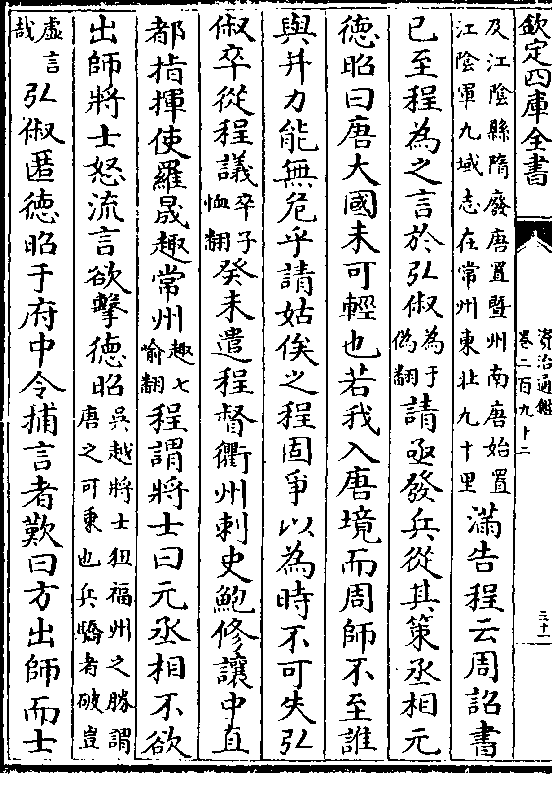 欽定四庫全書
資治通鑑
卷二百九十二
三十二
及江陰縣隋廢唐置暨州南唐始置
江陰軍九域志在常州東北九十里
滿告程云周詔書
已至程為之言於弘俶
為于
偽翻
請亟發兵從其策丞相元
德昭曰唐大國未可輕也若我入唐境而周師不至誰
與并力能無危乎請姑俟之程固爭以為時不可失弘
俶卒從程議
卒子
恤翻
癸未遣程督衢州刺史鮑修讓中直
都指揮使羅晟趣常州
趣七
喻翻
程謂將士曰元丞相不欲
出師將士怒流言欲擊德昭
吳越將士狃福州之勝謂
唐之可乘也兵驕者破豈
虛言
哉
弘俶匿德昭于府中令捕言者歎曰方出師而士